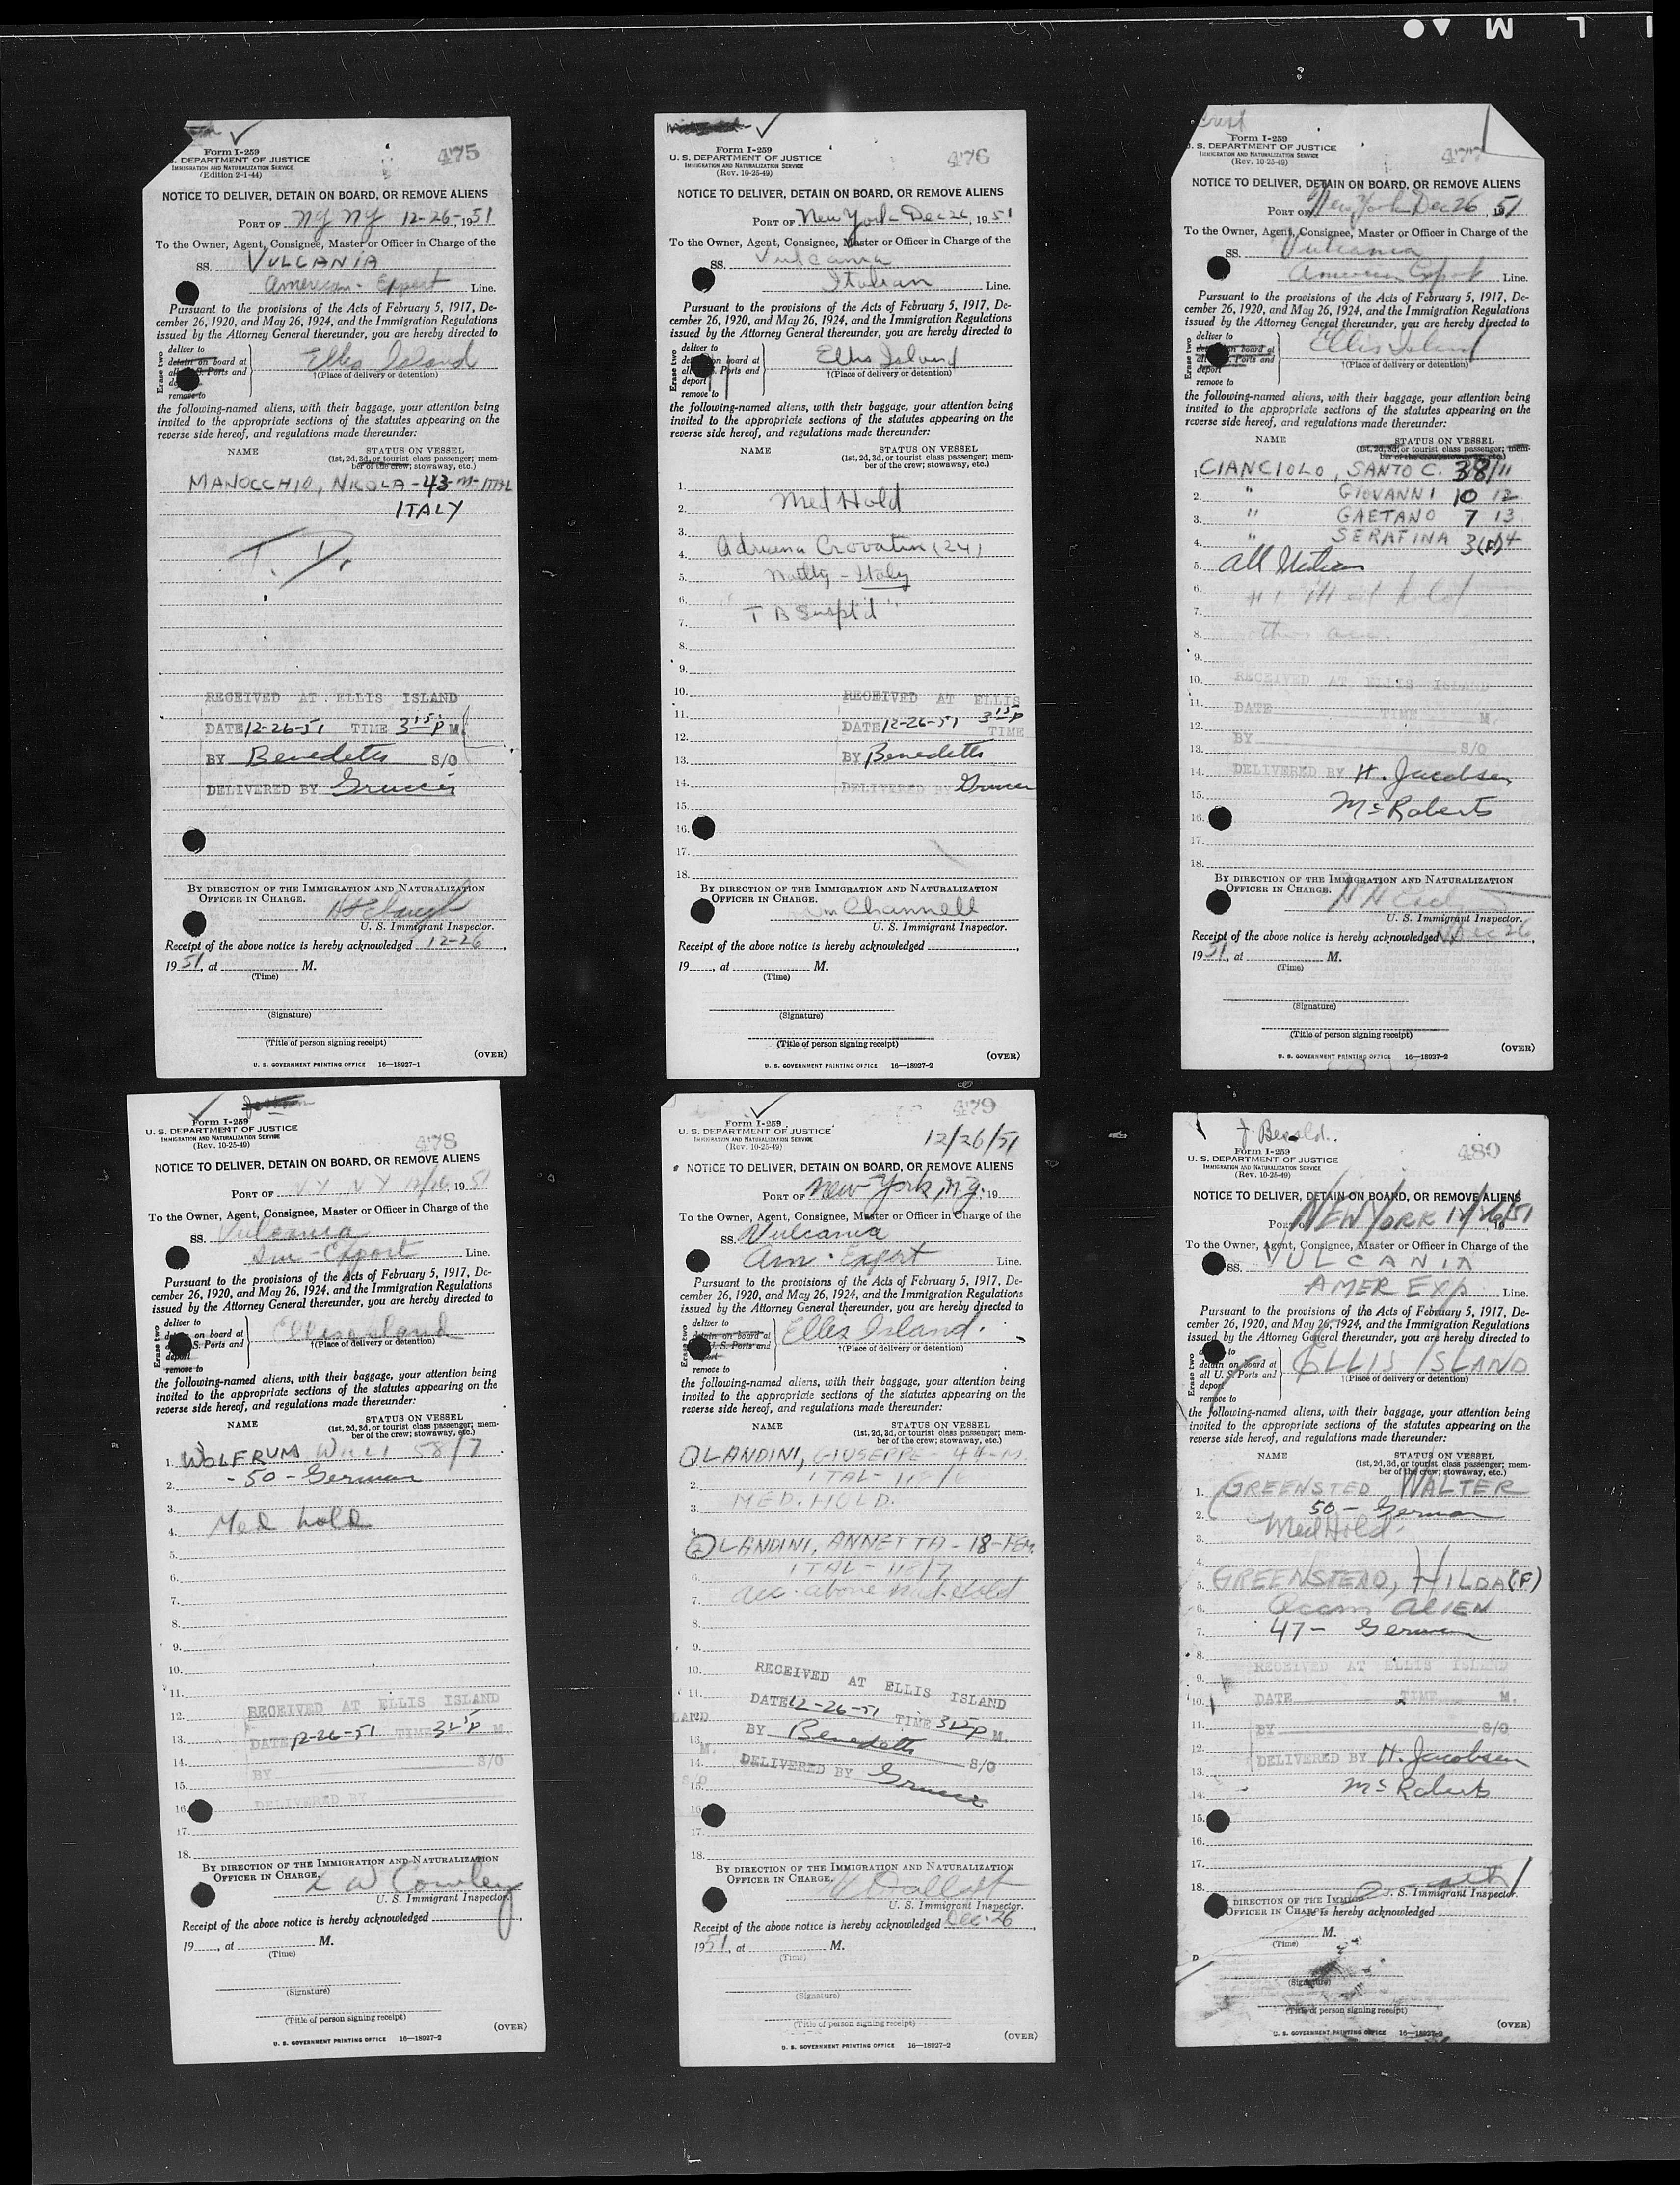 475
Form I-259
U. S. DEPARTMENT OF JUSTICE
IMMIGRATION AND NATURALIZATION SERVICE
(Edition 2-1-44)
NOTICE TO DELIVER, DETAIN ON BOARD, OR REMOVE ALIENS
PORT OF NY NY 12-26-, 1951
To the Owner, Agent, Consignee, Master or Officer in Charge of the
SS. VULCANIA
American-Export Line.
Pursuant to the provisions of the Acts of February 5, 1917, De-
cember 26, 1920, and May 26, 1924, and the Immigration Regulations
issued by the Attorney General thereunder, you are hereby directed to
Erase two
deliver to
detain on board at
all U. S. Ports and
remove to
Ellis Island
†(Place of delivery or detention)
the following-named aliens, with their baggage, your attention being
invited to the appropriate sections of the statutes appearing on the
reverse side hereof, and regulations made thereunder:
NAME STATUS ON VESSEL
(1st, 2d, 3d, or tourist class passenger; mem-
ber of the crew; stowaway, etc.)
MANOCCHIO, NICOLA-43-M-ITAL
ITALY
T. D.
RECEIVED AT ELLIS ISLAND
DATE 12-26-51 TIME 315 P M.
BY Benedetto S/O
DELIVERED BY
BY DIRECTION OF THE IMMIGRATION AND NATURALIZATION
OFFICER IN CHARGE.
U. S. Immigrant Inspector.
Receipt of the above notice is hereby acknowledged 12-26,
1951, at M.
(Time)
(Signature)
(Title of person signing receipt)
(OVER)
U. S. GOVERNMENT PRINTING OFFICE 16—18927-1
476
Form I-259
U. S. DEPARTMENT OF JUSTICE
IMMIGRATION AND NATURALIZATION SERVICE
(Rev. 10-25-49)
NOTICE TO DELIVER, DETAIN ON BOARD, OR REMOVE ALIENS
PORT OF New York Dec 26, 1951
To the Owner, Agent, Consignee, Master or Officer in Charge of the
SS. Vulcania
Italian Line.
Pursuant to the provisions of the Acts of February 5, 1917, De-
cember 26, 1920, and May 26, 1924, and the Immigration Regulations
issued by the Attorney General thereunder, you are hereby directed to
Erase two
deliver to
detain on board at
all U. S. Ports and
deport
remove to
Ellis Island
†(Place of delivery or detention)
the following-named aliens, with their baggage, your attention being
invited to the appropriate sections of the statutes appearing on the
reverse side hereof, and regulations made thereunder:
NAME STATUS ON VESSEL
(1st, 2d, 3d, or tourist class passenger; mem-
ber of the crew; stowaway, etc.)
1.
2. Med Hold
3.
4. Adriana Crovatin (24)
5. Natlty - Italy
6.
7. T B Suspt'd
8.
9.
10. RECEIVED AT ELLIS
11. DATE 12-26-51 315 P
12. TIME
13. BY Benedetto
14. DELIVERED BY
15.
16.
17.
18.
BY DIRECTION OF THE IMMIGRATION AND NATURALIZATION
OFFICER IN CHARGE.
Channell
U. S. Immigrant Inspector.
Receipt of the above notice is hereby acknowledged ,
19 , at M.
(Time)
(Signature)
(Title of person signing receipt)
(OVER)
U. S. GOVERNMENT PRINTING OFFICE 16—18927-2
477
Form I-259
U. S. DEPARTMENT OF JUSTICE
IMMIGRATION AND NATURALIZATION SERVICE
(Rev. 10-25-49)
NOTICE TO DELIVER, DETAIN ON BOARD, OR REMOVE ALIENS
PORT OF New York Dec 26, 51
To the Owner, Agent, Consignee, Master or Officer in Charge of the
SS. Vulcania
American Export Line.
Pursuant to the provisions of the Acts of February 5, 1917, De-
cember 26, 1920, and May 26, 1924, and the Immigration Regulations
issued by the Attorney General thereunder, you are hereby directed to
Erase two
deliver to
on board at
Ports and
deport
remove to
Ellis Island
†(Place of delivery or detention)
the following-named aliens, with their baggage, your attention being
invited to the appropriate sections of the statutes appearing on the
reverse side hereof, and regulations made thereunder:
NAME STATUS ON VESSEL
(1st, 2d, 3d, or tourist class passenger; mem-
ber of the crew; stowaway, etc.)
1. CIANCIOLO, SANTO C. 38/11
2. " GIOVANNI 10 12
3. " GAETANO 7 13
4. " SERAFINA 3(F) 4
5. All Italian
6. #1 Med hold
7.
8. others acc.
9.
10. RECEIVED AT ELLIS ISLAND
11. DATE TIME M.
12. BY S/O
13.
14. DELIVERED BY H. Jacobsen
15. McRoberts
16.
17.
18.
BY DIRECTION OF THE IMMIGRATION AND NATURALIZATION
OFFICER IN CHARGE.
U. S. Immigrant Inspector.
Receipt of the above notice is hereby acknowledged Dec 26,
1951, at M.
(Time)
(Signature)
(Title of person signing receipt)
(OVER)
U. S. GOVERNMENT PRINTING OFFICE 16—18927-2
478
Form I-259
U. S. DEPARTMENT OF JUSTICE
IMMIGRATION AND NATURALIZATION SERVICE
(Rev. 10-25-49)
NOTICE TO DELIVER, DETAIN ON BOARD, OR REMOVE ALIENS
PORT OF NY NY 12/26, 1951
To the Owner, Agent, Consignee, Master or Officer in Charge of the
SS. Vulcania
Am-Export Line.
Pursuant to the provisions of the Acts of February 5, 1917, De-
cember 26, 1920, and May 26, 1924, and the Immigration Regulations
issued by the Attorney General thereunder, you are hereby directed to
Erase two
deliver to
detain on board at
S. Ports and
deport
remove to
Ellis Island
†(Place of delivery or detention)
the following-named aliens, with their baggage, your attention being
invited to the appropriate sections of the statutes appearing on the
reverse side hereof, and regulations made thereunder:
NAME STATUS ON VESSEL
(1st, 2d, 3d, or tourist class passenger; mem-
ber of the crew; stowaway, etc.)
1. WOLFRUM Willi 58/7
2. -50-German
3.
4. Med hold
5.
6.
7.
8.
9.
10.
11.
12. RECEIVED AT ELLIS ISLAND
13. DATE 12-26-51 TIME 315 P M.
14. BY S/O
15.
16. DELIVERED BY
17.
18.
BY DIRECTION OF THE IMMIGRATION AND NATURALIZATION
OFFICER IN CHARGE.
U. S. Immigrant Inspector.
Receipt of the above notice is hereby acknowledged ,
19 , at M.
(Time)
(Signature)
(Title of person signing receipt)
(OVER)
U. S. GOVERNMENT PRINTING OFFICE 16—18927-2
479
Form I-259
U. S. DEPARTMENT OF JUSTICE
IMMIGRATION AND NATURALIZATION SERVICE
(Rev. 10-25-49)
12/26/51
NOTICE TO DELIVER, DETAIN ON BOARD, OR REMOVE ALIENS
PORT OF New York, N.Y. 19
To the Owner, Agent, Consignee, Master or Officer in Charge of the
SS. Vulcania
Am. Export Line.
Pursuant to the provisions of the Acts of February 5, 1917, De-
cember 26, 1920, and May 26, 1924, and the Immigration Regulations
issued by the Attorney General thereunder, you are hereby directed to
Erase two
deliver to
detain on board at
U. S. Ports and
deport
remove to
Ellis Island.
†(Place of delivery or detention)
the following-named aliens, with their baggage, your attention being
invited to the appropriate sections of the statutes appearing on the
reverse side hereof, and regulations made thereunder:
NAME STATUS ON VESSEL
(1st, 2d, 3d, or tourist class passenger; mem-
ber of the crew; stowaway, etc.)
1 LANDINI, GIUSEPPE 44-M.
2. ITAL- 118/6
3. MED. HOLD.
4.
2 LANDINI, ANNETTA - 18-FEM.
6. ITAL- 118/7
7. acc. above Med. Hold
8.
9.
10. RECEIVED AT ELLIS ISLAND
11. DATE 12-26-51 TIME 315 P M.
12.
13. BY Benedetto S/O
14. DELIVERED BY
15.
16.
17.
18.
BY DIRECTION OF THE IMMIGRATION AND NATURALIZATION
OFFICER IN CHARGE.
U. S. Immigrant Inspector.
Receipt of the above notice is hereby acknowledged Dec. 26,
1951, at M.
(Time)
(Signature)
(Title of person signing receipt)
(OVER)
U. S. GOVERNMENT PRINTING OFFICE 16—18927-2
480
Form I-259
U. S. DEPARTMENT OF JUSTICE
IMMIGRATION AND NATURALIZATION SERVICE
(Rev. 10-25-49)
NOTICE TO DELIVER, DETAIN ON BOARD, OR REMOVE ALIENS
PORT OF NEW YORK 12/26/51
To the Owner, Agent, Consignee, Master or Officer in Charge of the
SS. VULCANIA
AMER EXP Line.
Pursuant to the provisions of the Acts of February 5, 1917, De-
cember 26, 1920, and May 26, 1924, and the Immigration Regulations
issued by the Attorney General thereunder, you are hereby directed to
Erase two
to
detain on board at
all U. S. Ports and
deport
remove to
ELLIS ISLAND
†(Place of delivery or detention)
the following-named aliens, with their baggage, your attention being
invited to the appropriate sections of the statutes appearing on the
reverse side hereof, and regulations made thereunder:
NAME STATUS ON VESSEL
(1st, 2d, 3d, or tourist class passenger; mem-
ber of the crew; stowaway, etc.)
1. GREENSTED WALTER
2. 50 - German
3. Med Hold
4.
5. GREENSTEAD, HILDA (F)
6. Accom ALIEN
7. 47 - German
8. RECEIVED AT ELLIS ISLAND
9.
10. DATE TIME M.
11. BY S/O
12. DELIVERED BY H. Jacobsen
13.
14. McRoberts
15.
16.
17.
18.
U. S. Immigrant Inspector.
DIRECTION OF THE IMMIG
OFFICER IN CHARGE
is hereby acknowledged
M.
(Time)
(Signature)
(Title of person signing receipt)
(OVER)
U. S. GOVERNMENT PRINTING OFFICE 16—18927-2